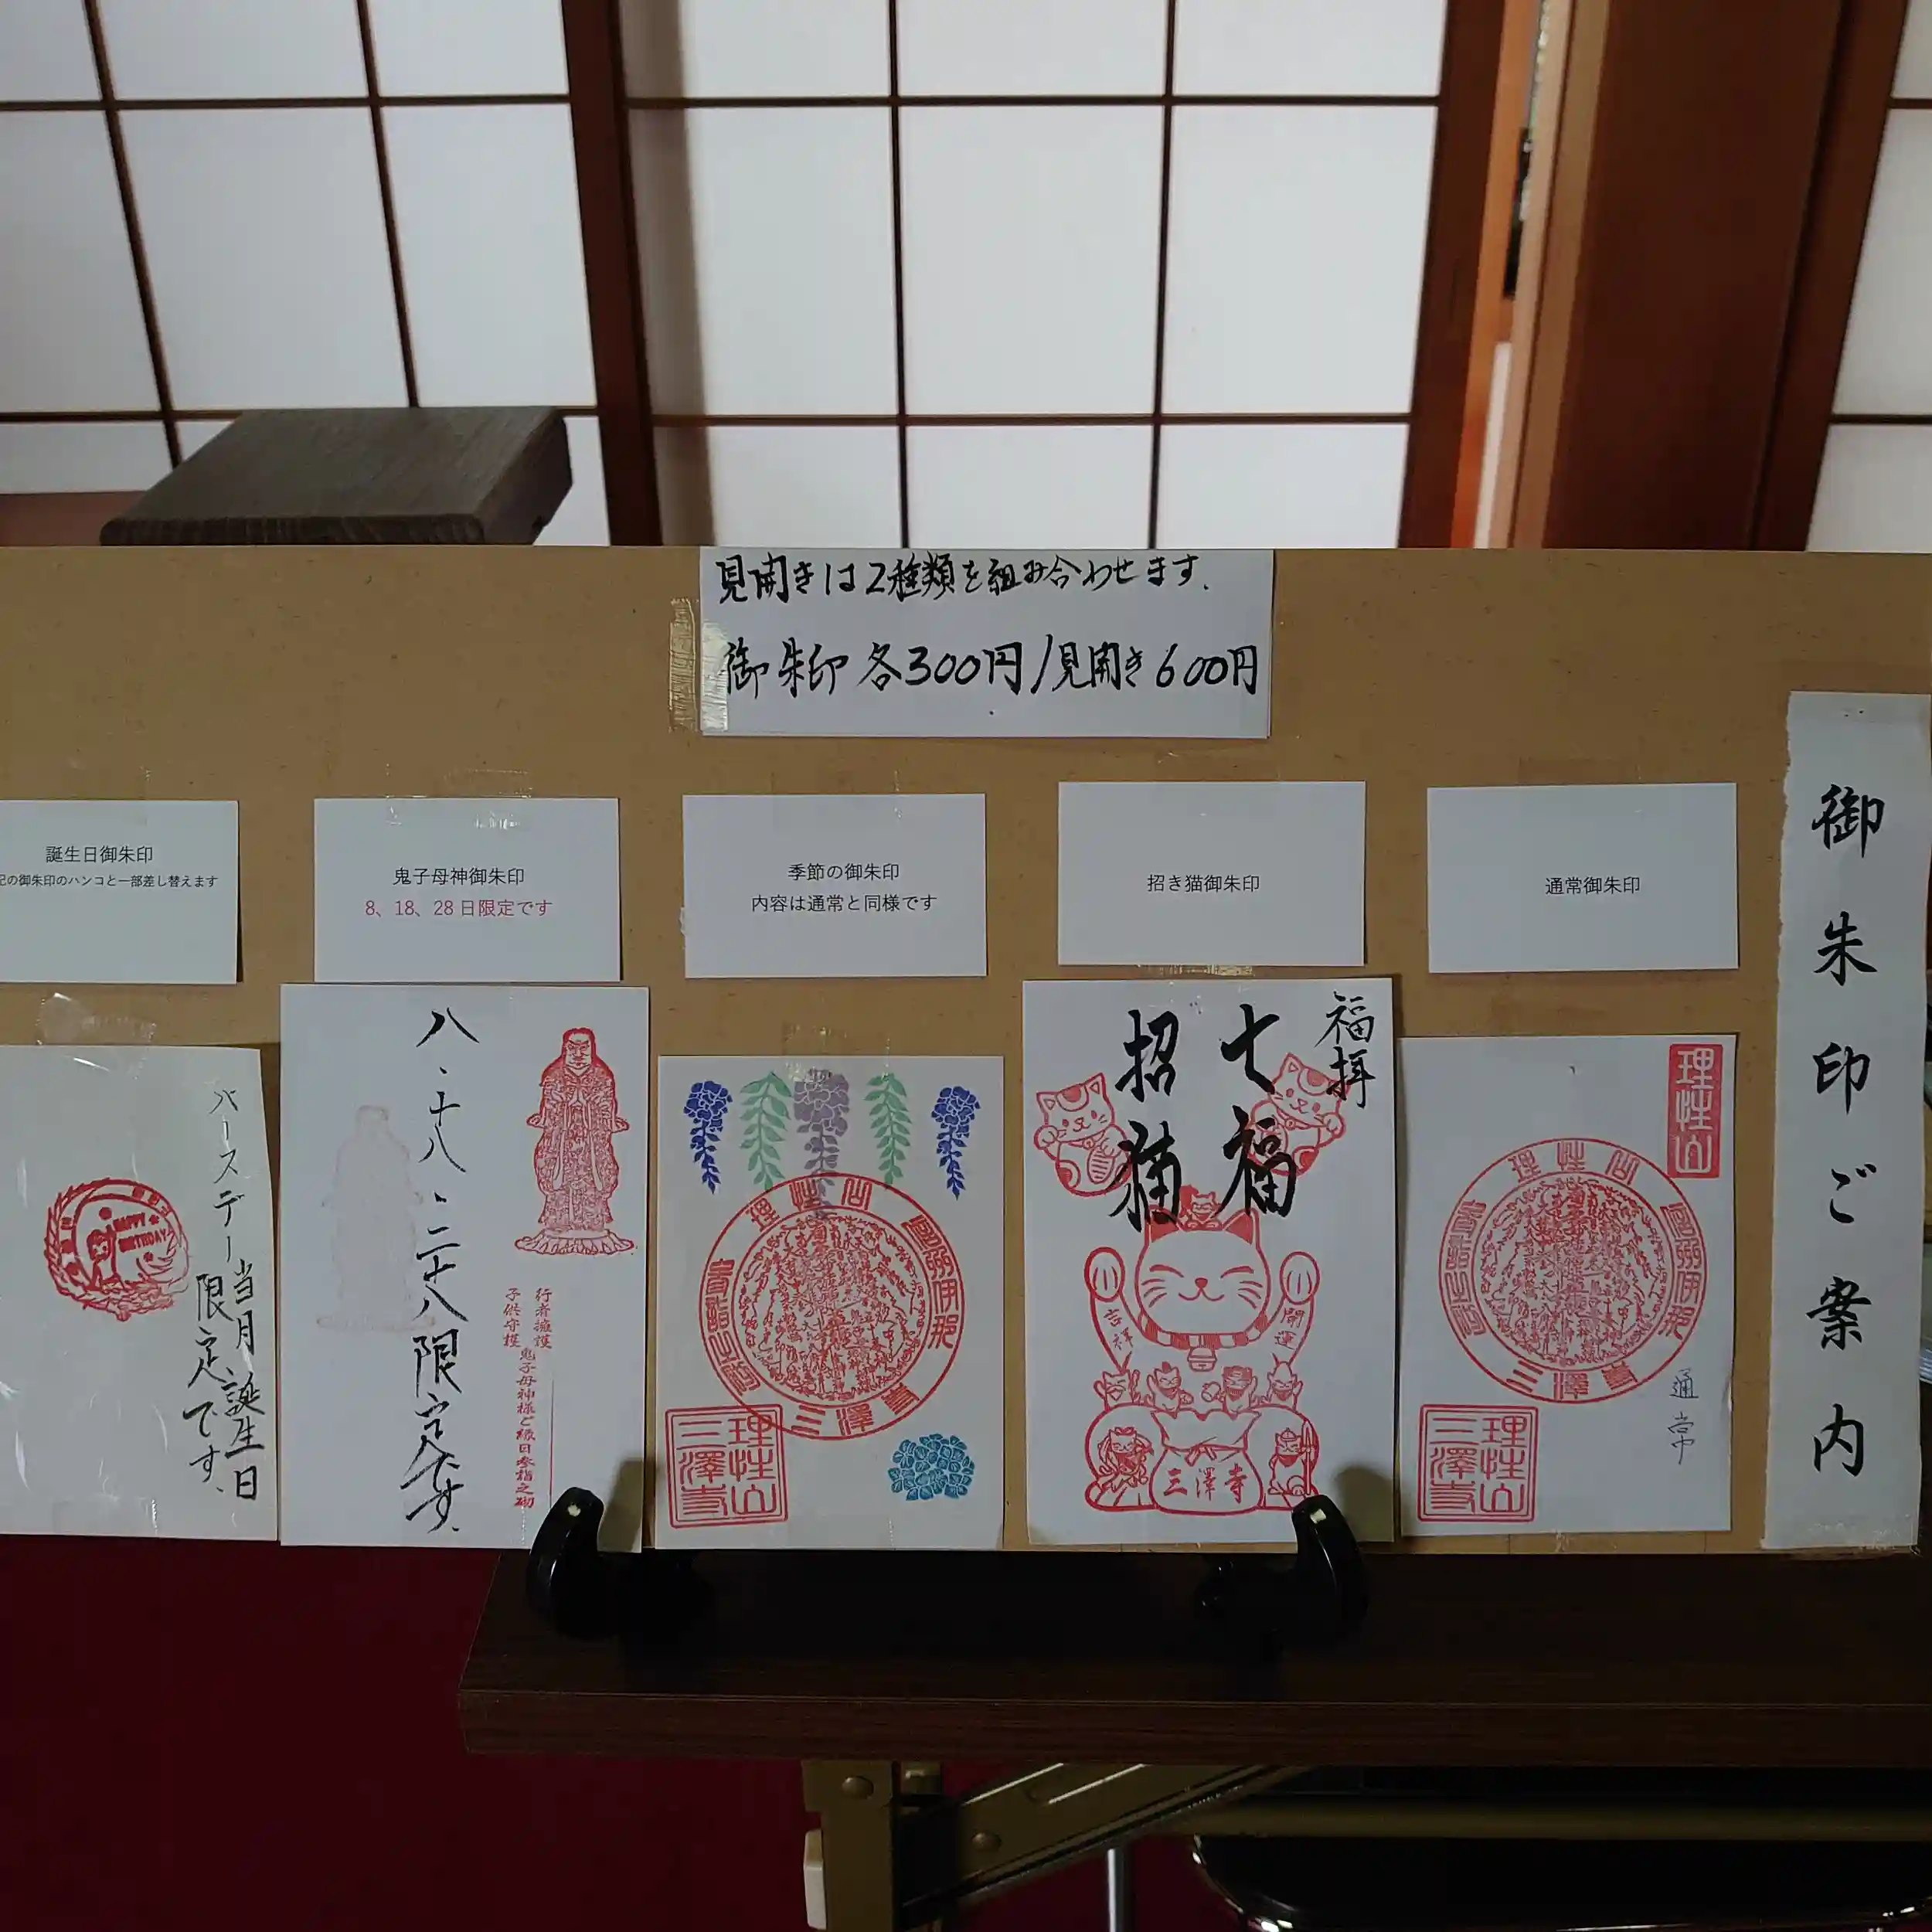 見開きは2種類を組み合わせます.
御朱印各300円/見開き600円
御朱印ご案内
通常御朱印
理性山
通常
理性山
三澤寺
招き猫御朱印
福拝
七福
招猫
開運
吉祥
三澤寺
季節の御朱印
内容は通常と同様です
理性山
三澤寺
理性山
三澤寺
鬼子母神御朱印
8、18、28日限定です
八・十八・二十八限定です.
行者擁護
子供守護
鬼子母神様ご縁日参詣之砌
誕生日御朱印
記の御朱印のハンコと一部差し替えます
バースデー
当月誕生日
限定です.
HAPPY
BIRTHDAY